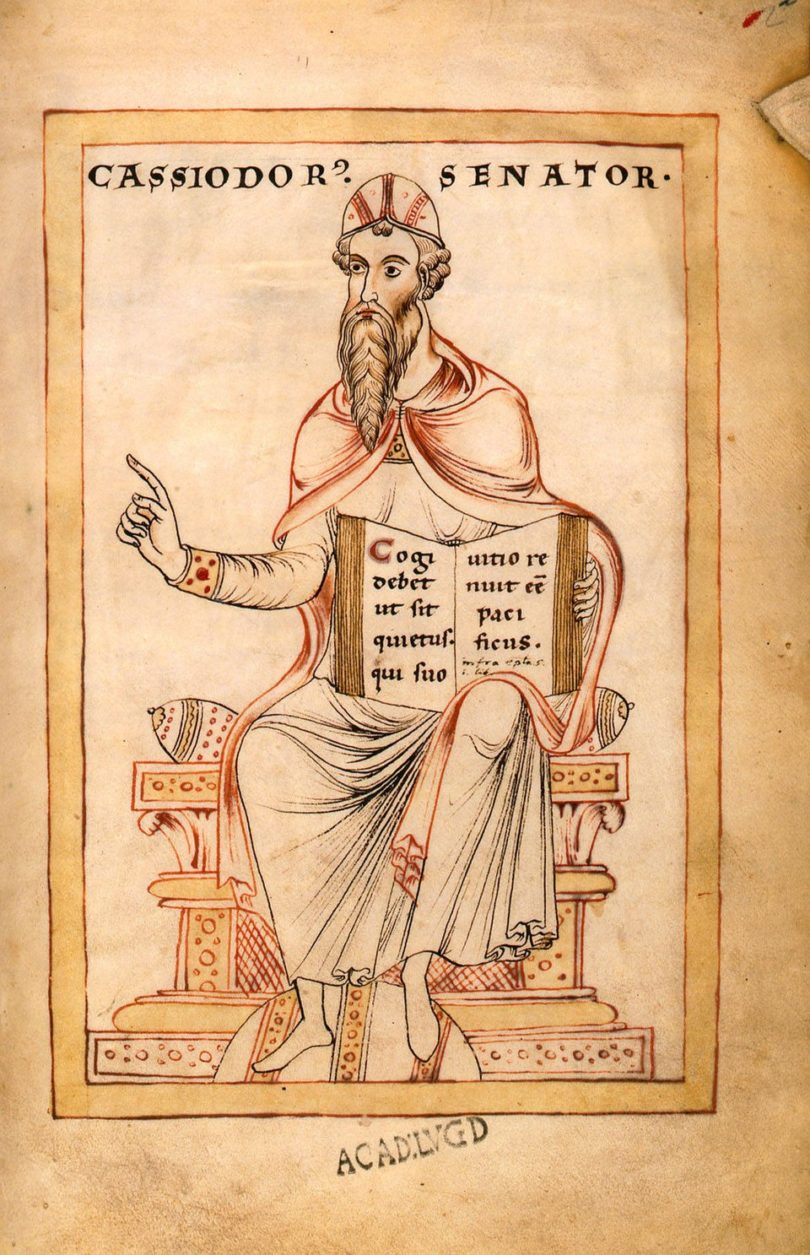 CASSIODORꝰ. SENATOR.
Cogi
debet
ut sit
quietus.
qui suo
uitio re
nuit eē
paci
ficus.
infra epla
i. lib
ACAD. LVGD